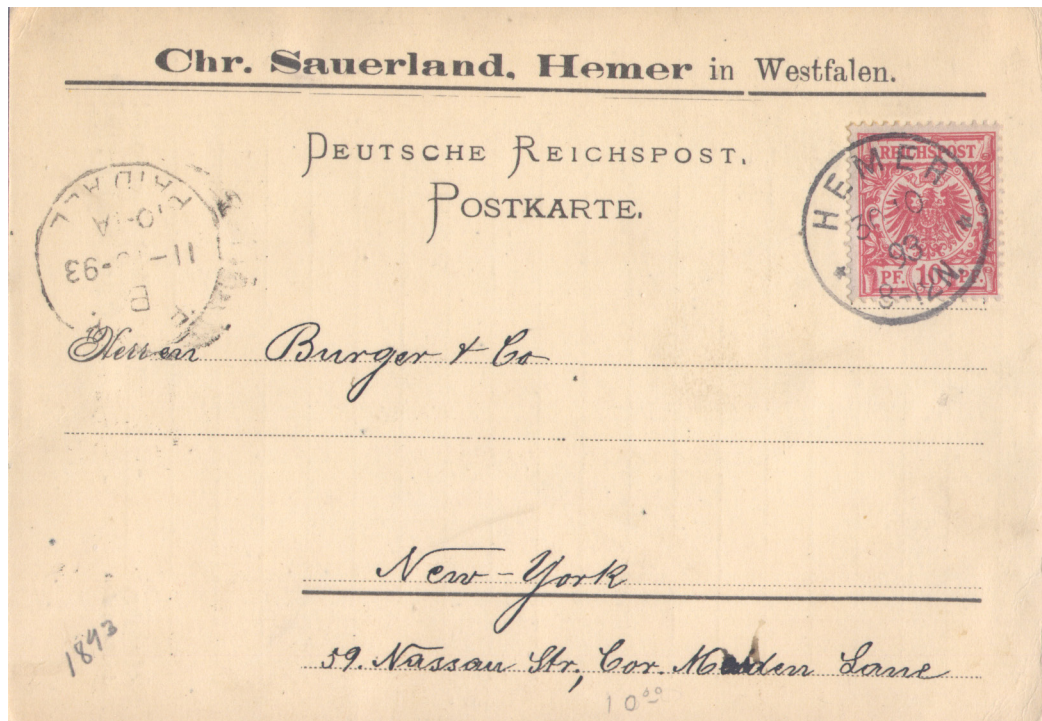 Chr. Sauerland, Hemer in Westfalen.
DEUTSCHE REICHSPOST.
POSTKARTE.
REICHSPOST
PF. 10 PF.
HEMER
93
8-12N
PAID ALL
B
Herren Burger & Co
New-York
59. Nassau Str., Cor. Maiden Lane
1893
10 00